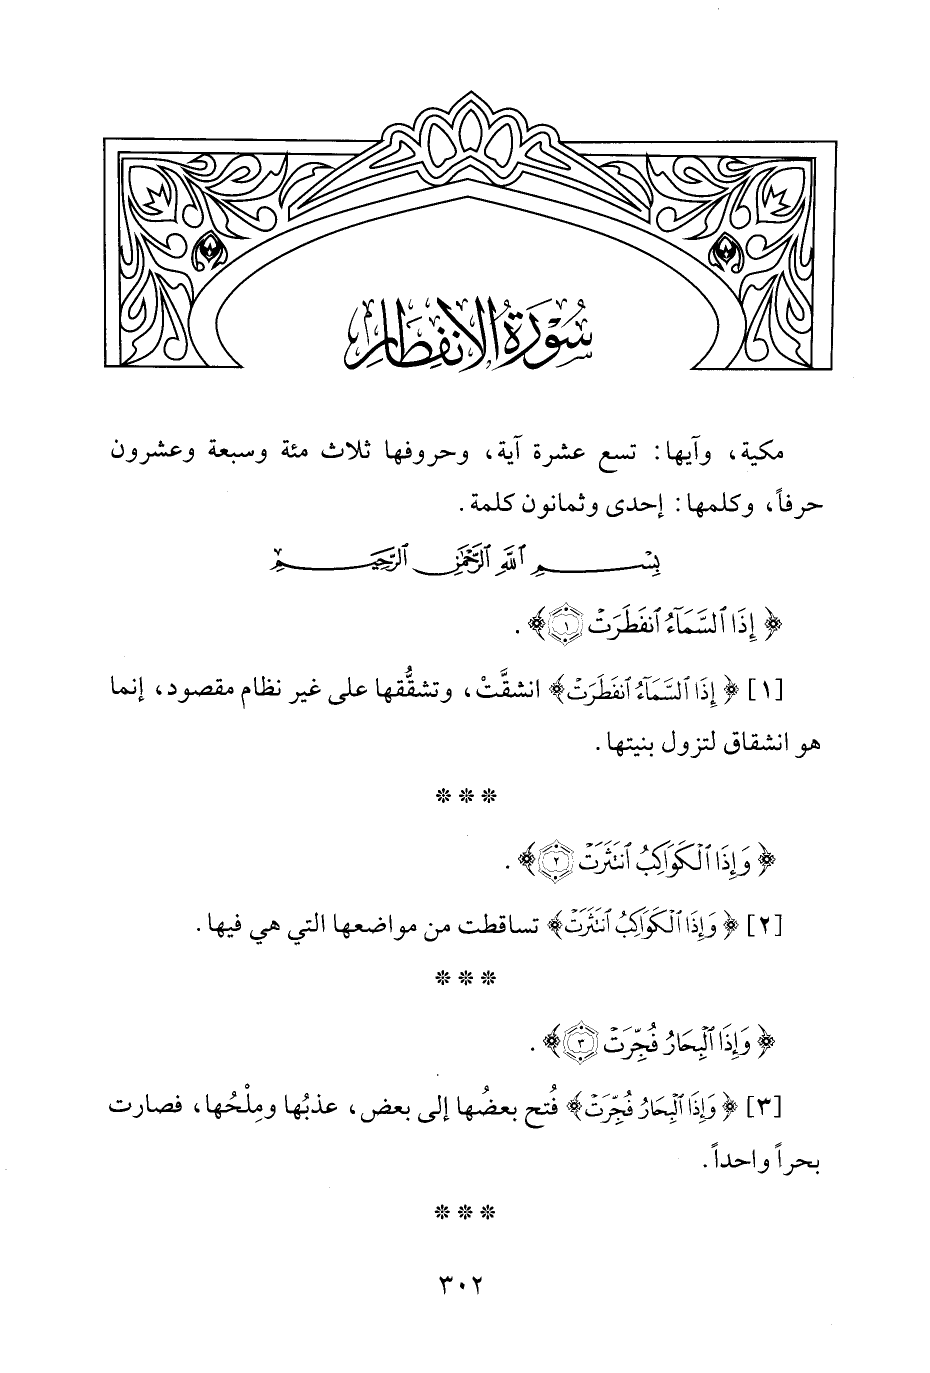 سُورَةُ الانفِطَارِ
مكية، وآيها: تسع عشرة آية، وحروفها ثلاث مئة وسبعة وعشرون
حرفاً، وكلمها: إحدى وثمانون كلمة.
بِسْمِ ٱللَّهِ ٱلرَّحْمَٰنِ ٱلرَّحِيمِ
﴿إِذَا ٱلسَّمَآءُ ٱنفَطَرَتۡ ١﴾.
[١] ﴿إِذَا ٱلسَّمَآءُ ٱنفَطَرَتۡ﴾ انشقَّتْ، وتشقُّقها على غير نظام مقصود، إنما
هو انشقاق لتزول بنيتها.
***
﴿وَإِذَا ٱلۡكَوَاكِبُ ٱنتَثَرَتۡ ٢﴾.
[٢] ﴿وَإِذَا ٱلۡكَوَاكِبُ ٱنتَثَرَتۡ﴾ تساقطت من مواضعها التي هي فيها.
***
﴿وَإِذَا ٱلۡبِحَارُ فُجِّرَتۡ ٣﴾.
[٣] ﴿وَإِذَا ٱلۡبِحَارُ فُجِّرَتۡ﴾ فُتح بعضُها إلى بعض، عذبُها ومِلْحُها، فصارت
بحراً واحداً.
***
٣٠٢